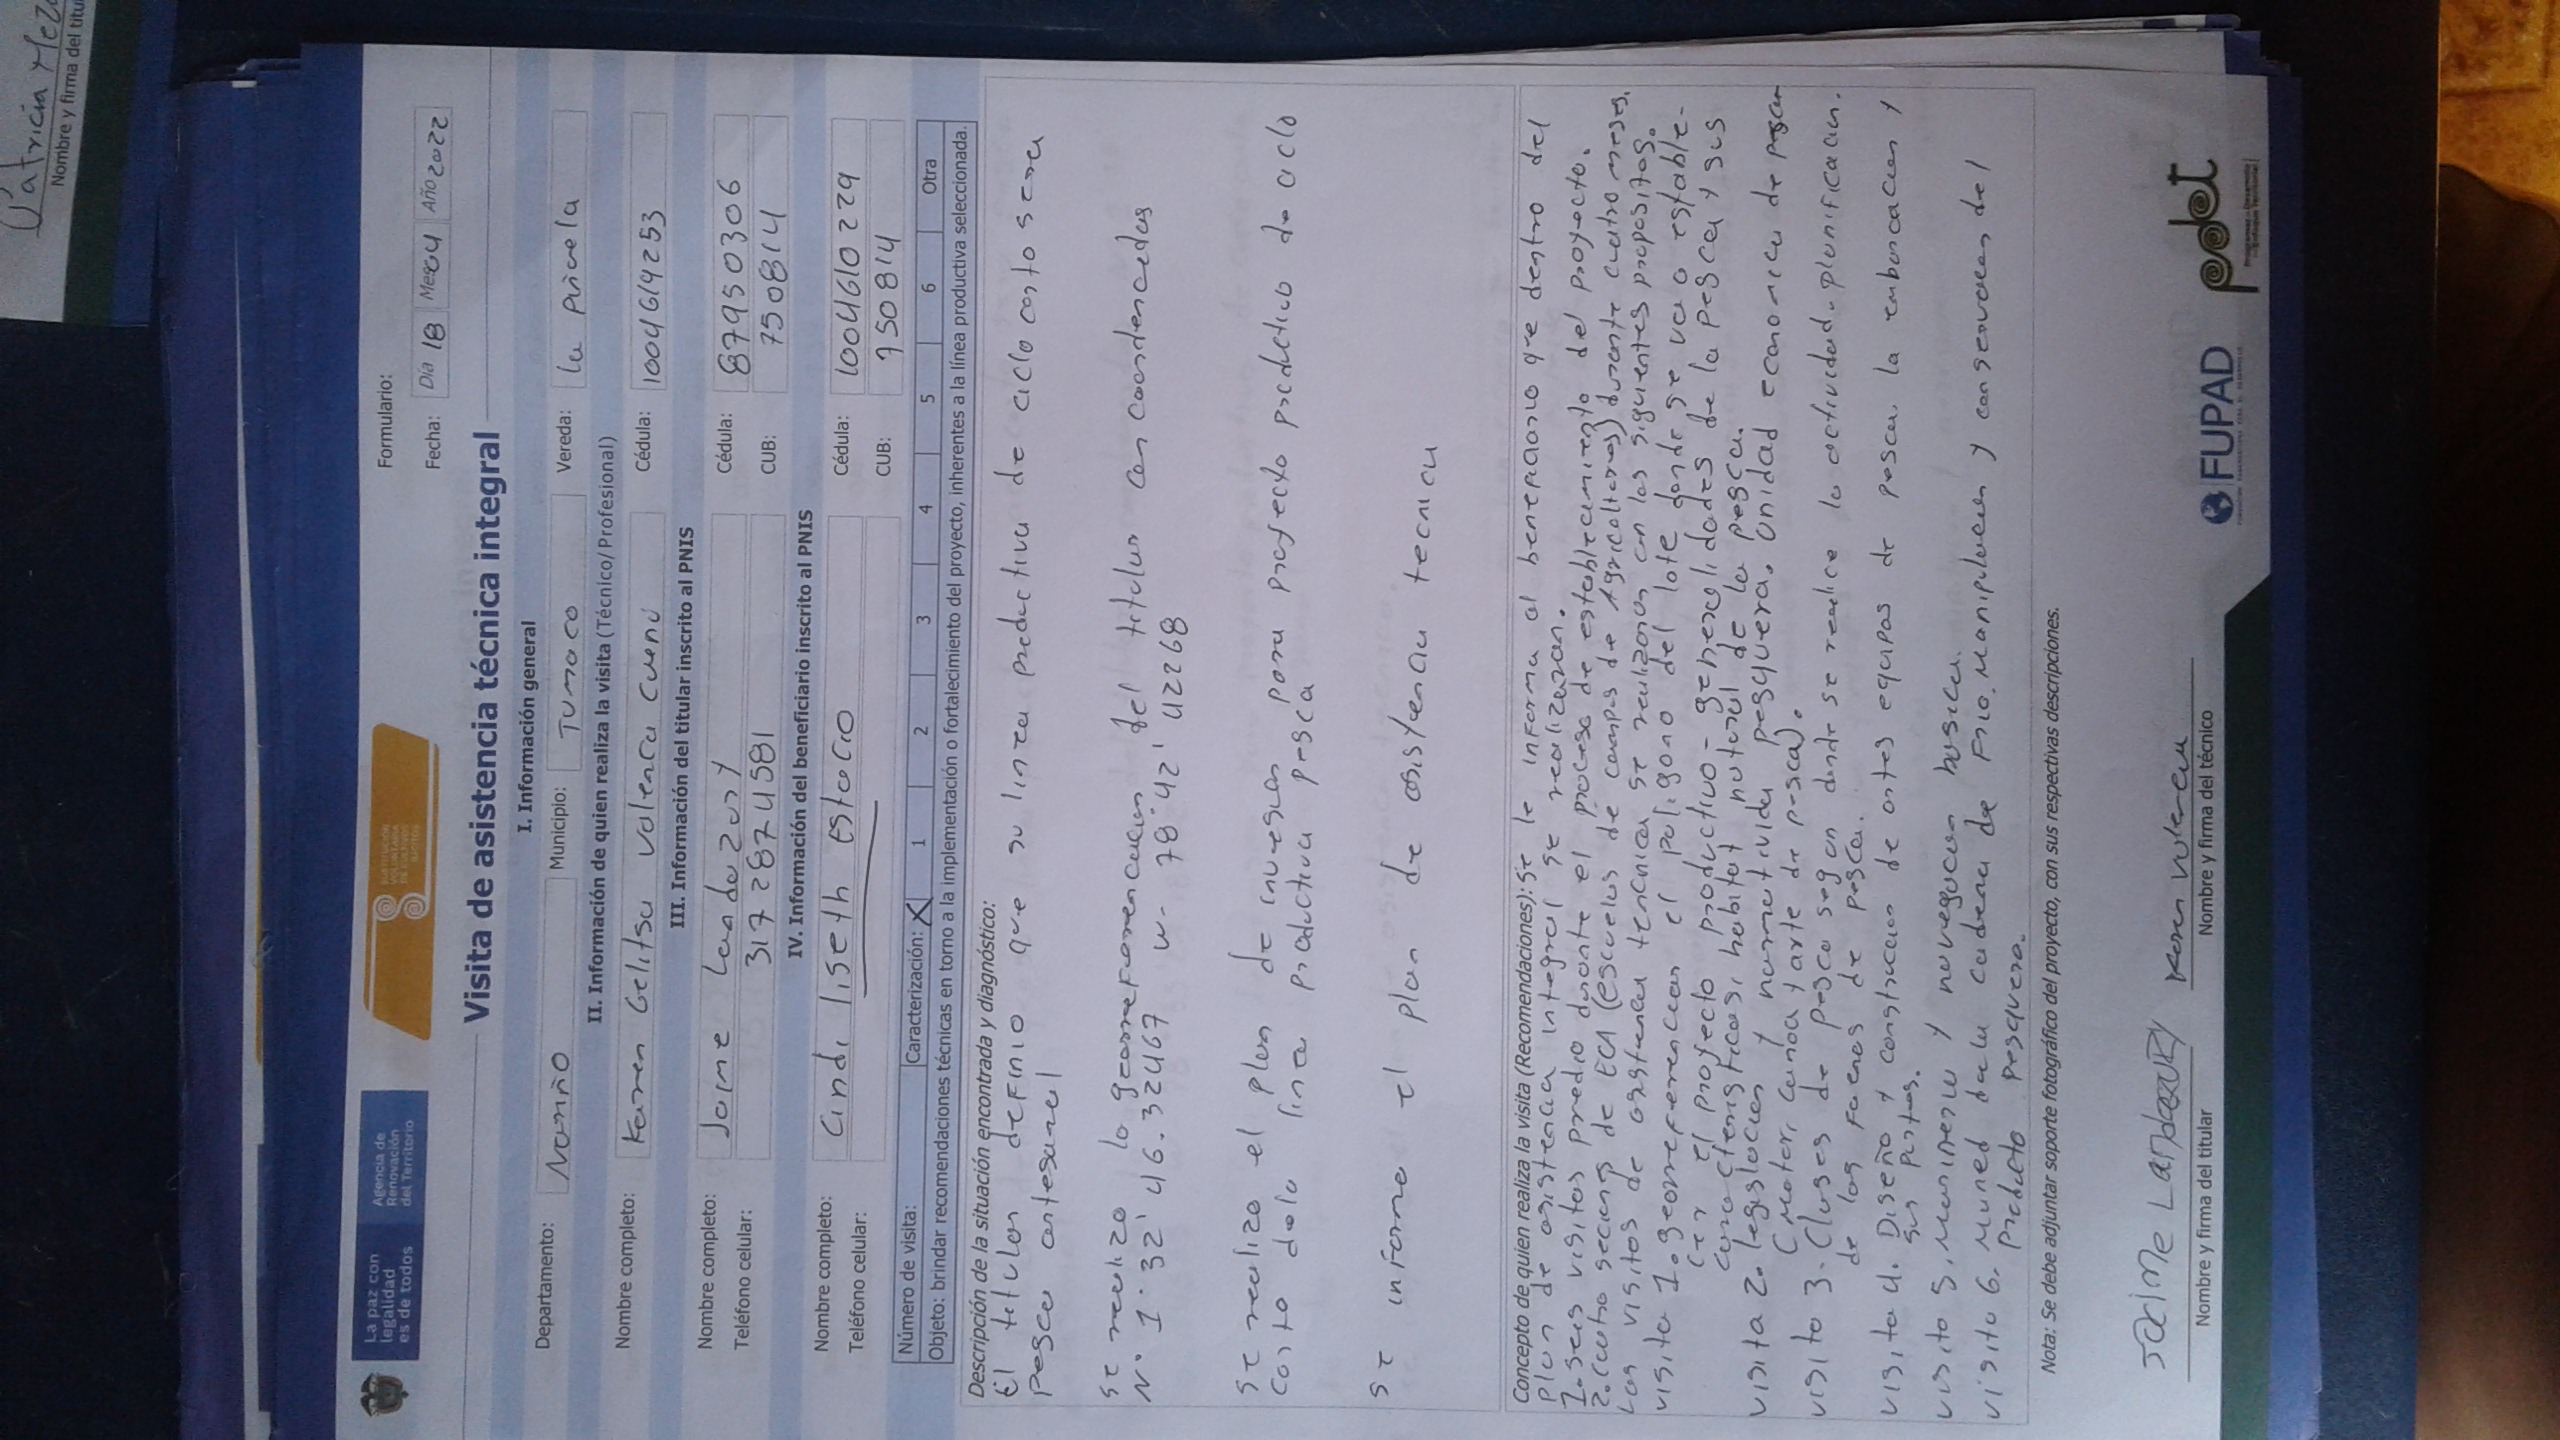 Patricia Meza
Nombre y firma del titu
La paz con
legalidad
es de todos
Agencia de
Renovación
del Territorio
SUSTITUCIÓN
VOLUNTARIA
DE CULTIVOS
ILÍCITOS
Formulario:
Fecha: Día 18 Mes 04 Año 2022
Visita de asistencia técnica integral
I. Información general
Departamento: Nariño Municipio: Tumaco Vereda: la piñuela
II. Información de quien realiza la visita (Técnico/Profesional)
Nombre completo: Karen Gelitsa Valencia Cuenú Cédula: 1004619253
III. Información del titular inscrito al PNIS
Nombre completo: Jaime Landazury Cédula: 87950306
Teléfono celular: 3172874581 CUB: 750814
IV. Información del beneficiario inscrito al PNIS
Nombre completo: Cindi liseth Estacio Cédula: 1004610229
Teléfono celular: CUB: 750814
Número de visita: Caracterización: X 1 2 3 4 5 6 Otra
Objeto: brindar recomendaciones técnicas en torno a la implementación o fortalecimiento del proyecto, inherentes a la línea productiva seleccionada.
Descripción de la situación encontrada y diagnóstico:
El titular definio que su linea productiva de ciclo corto sera
pesca artesanal
se realizo la georreferenciacion del titular con coordenadas
N. 1° 32' 46.32467 w- 78° 42' 42268
se realizo el plan de inversion para proyecto productivo de ciclo
corto dela linea productiva pesca
se informo el plan de asistencia tecnica
Concepto de quien realiza la visita (Recomendaciones): se le informa al beneficiario que dentro del
plan de asistencia integral se realizaran.
1. seis visitas predio durante el proceso de establecimiento del proyecto.
2. cuatro seciong de ECA (escuelas de campos de Agricultores) durante cuatro meses.
Las visitas de asistencia tecnica se realizaran con los siguientes propositos.
visita 1. georreferenciar el poligono del lote donde se va a estable-
cer el proyecto productivo - generalidades de la pesca y sus
caracteristicas, habitat natural de la pesca.
visita 2. legislacion y normatividad pesquera. Unidad economica de pesca
(Motor, canoa y arte de pesca).
visita 3. Clases de pesca segun donde se realice la actividad. planificacion.
de las faenas de pesca.
visita 4. Diseño y construccion de artes equipos de pesca. la embarcacion y
sus partes.
visita 5. Marineria y navegacion basica.
visita 6. Manejo dela cadena de Frio. Manipulacion y conservacion del
producto pesquero.
Nota: Se debe adjuntar soporte fotográfico del proyecto, con sus respectivas descripciones.
Jaime Landazury
Nombre y firma del titular
Karen Valencia
Nombre y firma del técnico
FUPAD
pdet